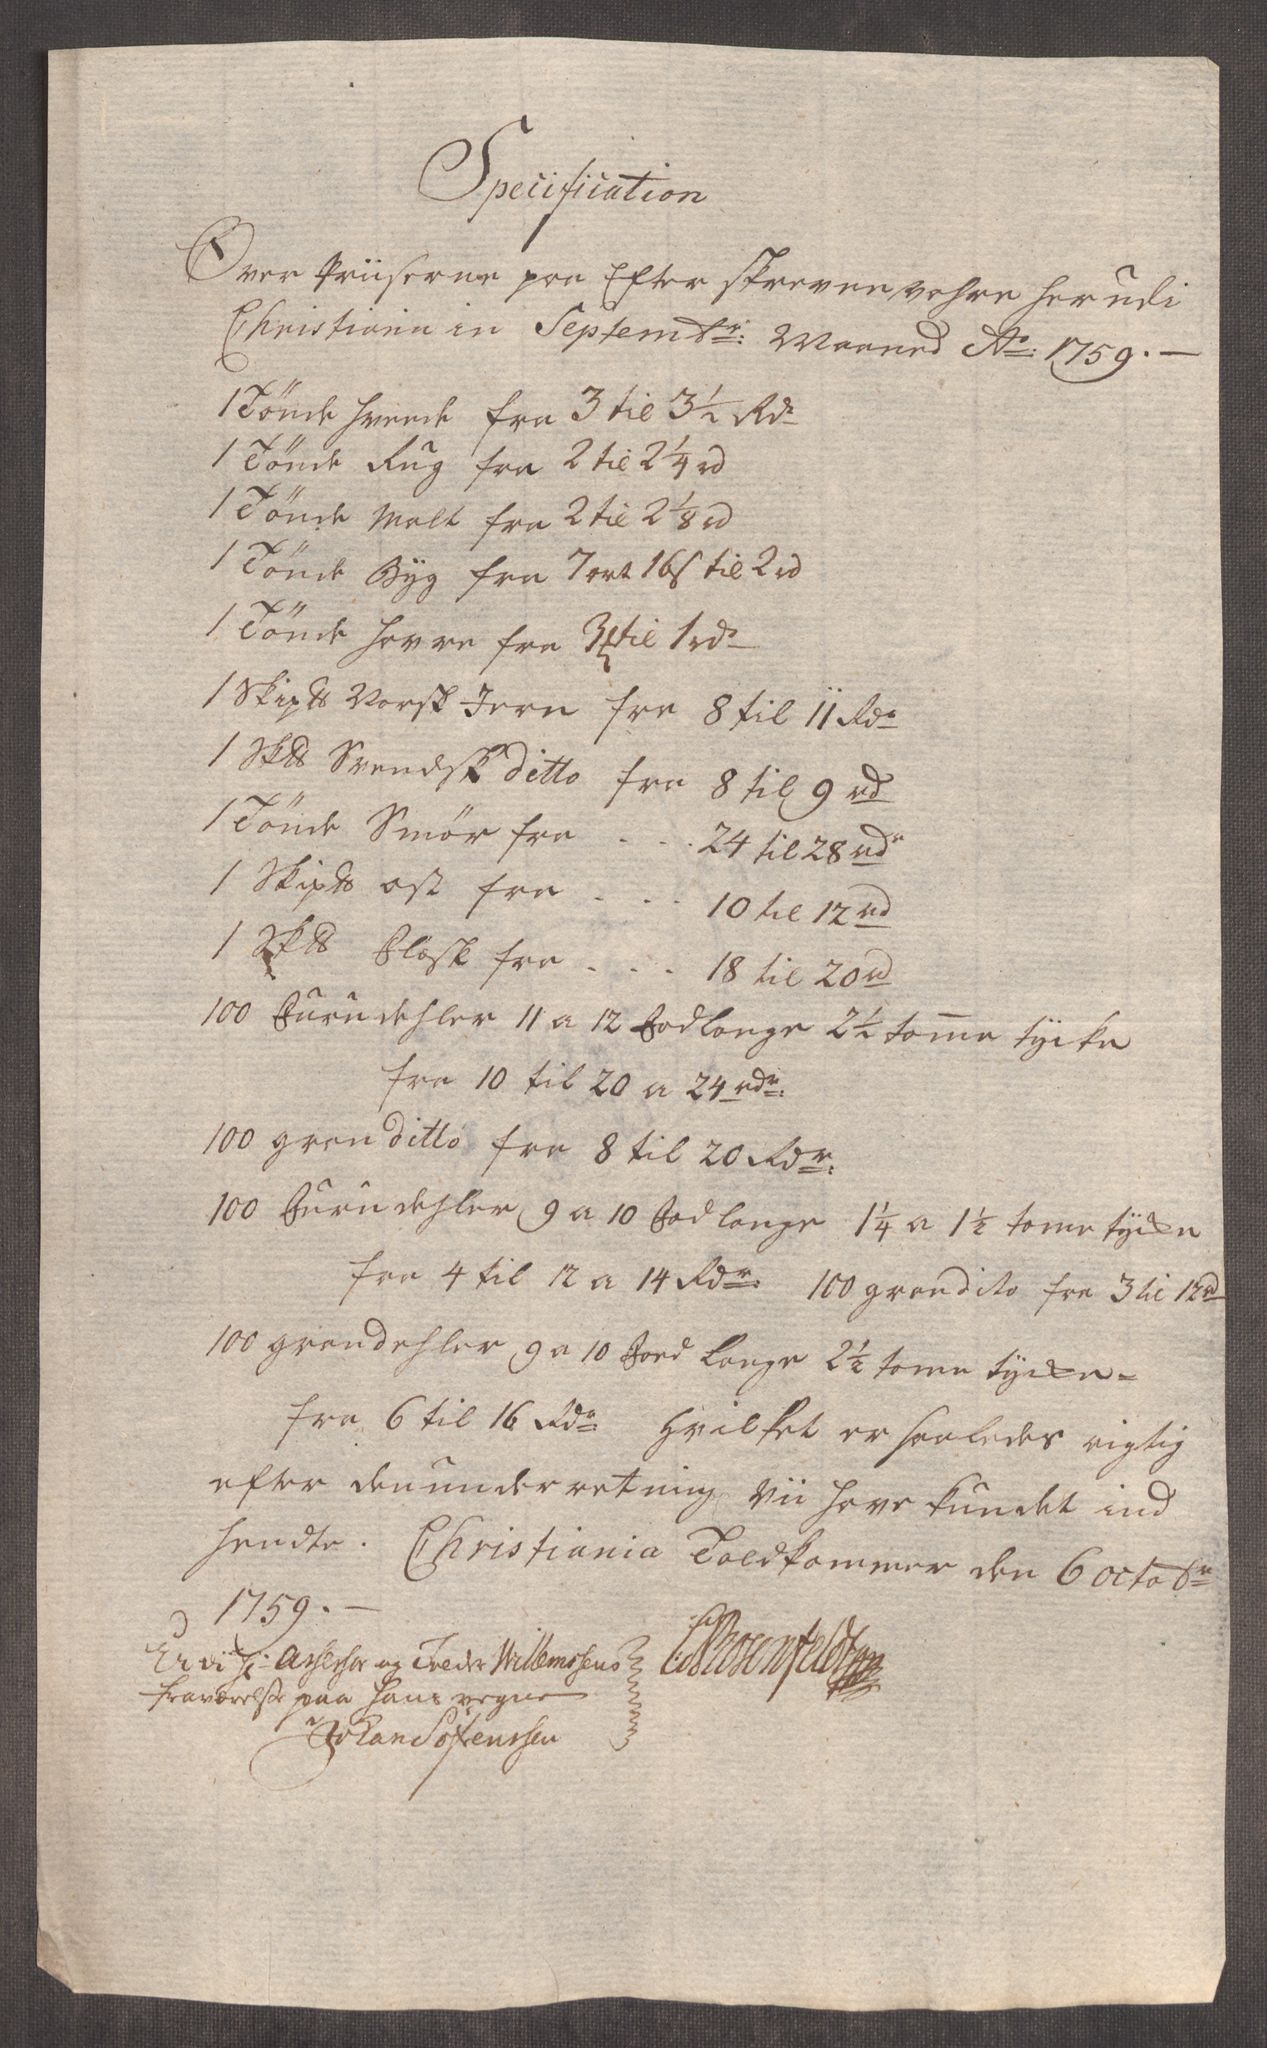 Specification
Over Priiserne paa Efter skrevne vahre her udi
Christiania in Septembr: Maaned Ao: 1759. —
1 Tönde hvede fra 3 til 3½ Rdr
1 Tönde Rug fra 2 til 2¼ rd
1 Tönde Malt fra 2 til 2⅛ rd
1 Tönde Byg fra 7 ort 16 s til 2 rd
1 Tönde Havre fra 3 til 1 rdr
1 Skip℔ Norsk Jern fra 8 til 11 Rdr
1 Sk℔ Svendsk ditto fra 8 til 9 rd
1 Tönde Smör fra . . . 24 til 28 rdr
1 Skip℔ ost fra . . . 10 til 12 rd
1 Sk℔ Flæsk fra . . . 18 til 20 rd
100 Furudehler 11 a 12 Fod lange 2½ tome tycke
fra 10 til 20 a 24 rdr:
100 gran ditto fra 8 til 20 Rdr:
100 Furudehler 9 a 10 Fod lange 1¼ a 1½ tome tycke
fra 4 til 12 a 14 Rdr: 100 gran dito fra 3 til 12 rd
100 grandehler 9 a 10 Foed lange 2½ tome tycke -
fra 6 til 16 Rdr hvilket er saaledes rigtig
efter den underretning vii have kundet ind
hendte. Christiania Toldkammer den 6 octobr
1759. —
Udi Hr Assessor og Tolder Willemsens
fraværelse paa hans vegne
Johan Sørenssen
Rosenfeldt